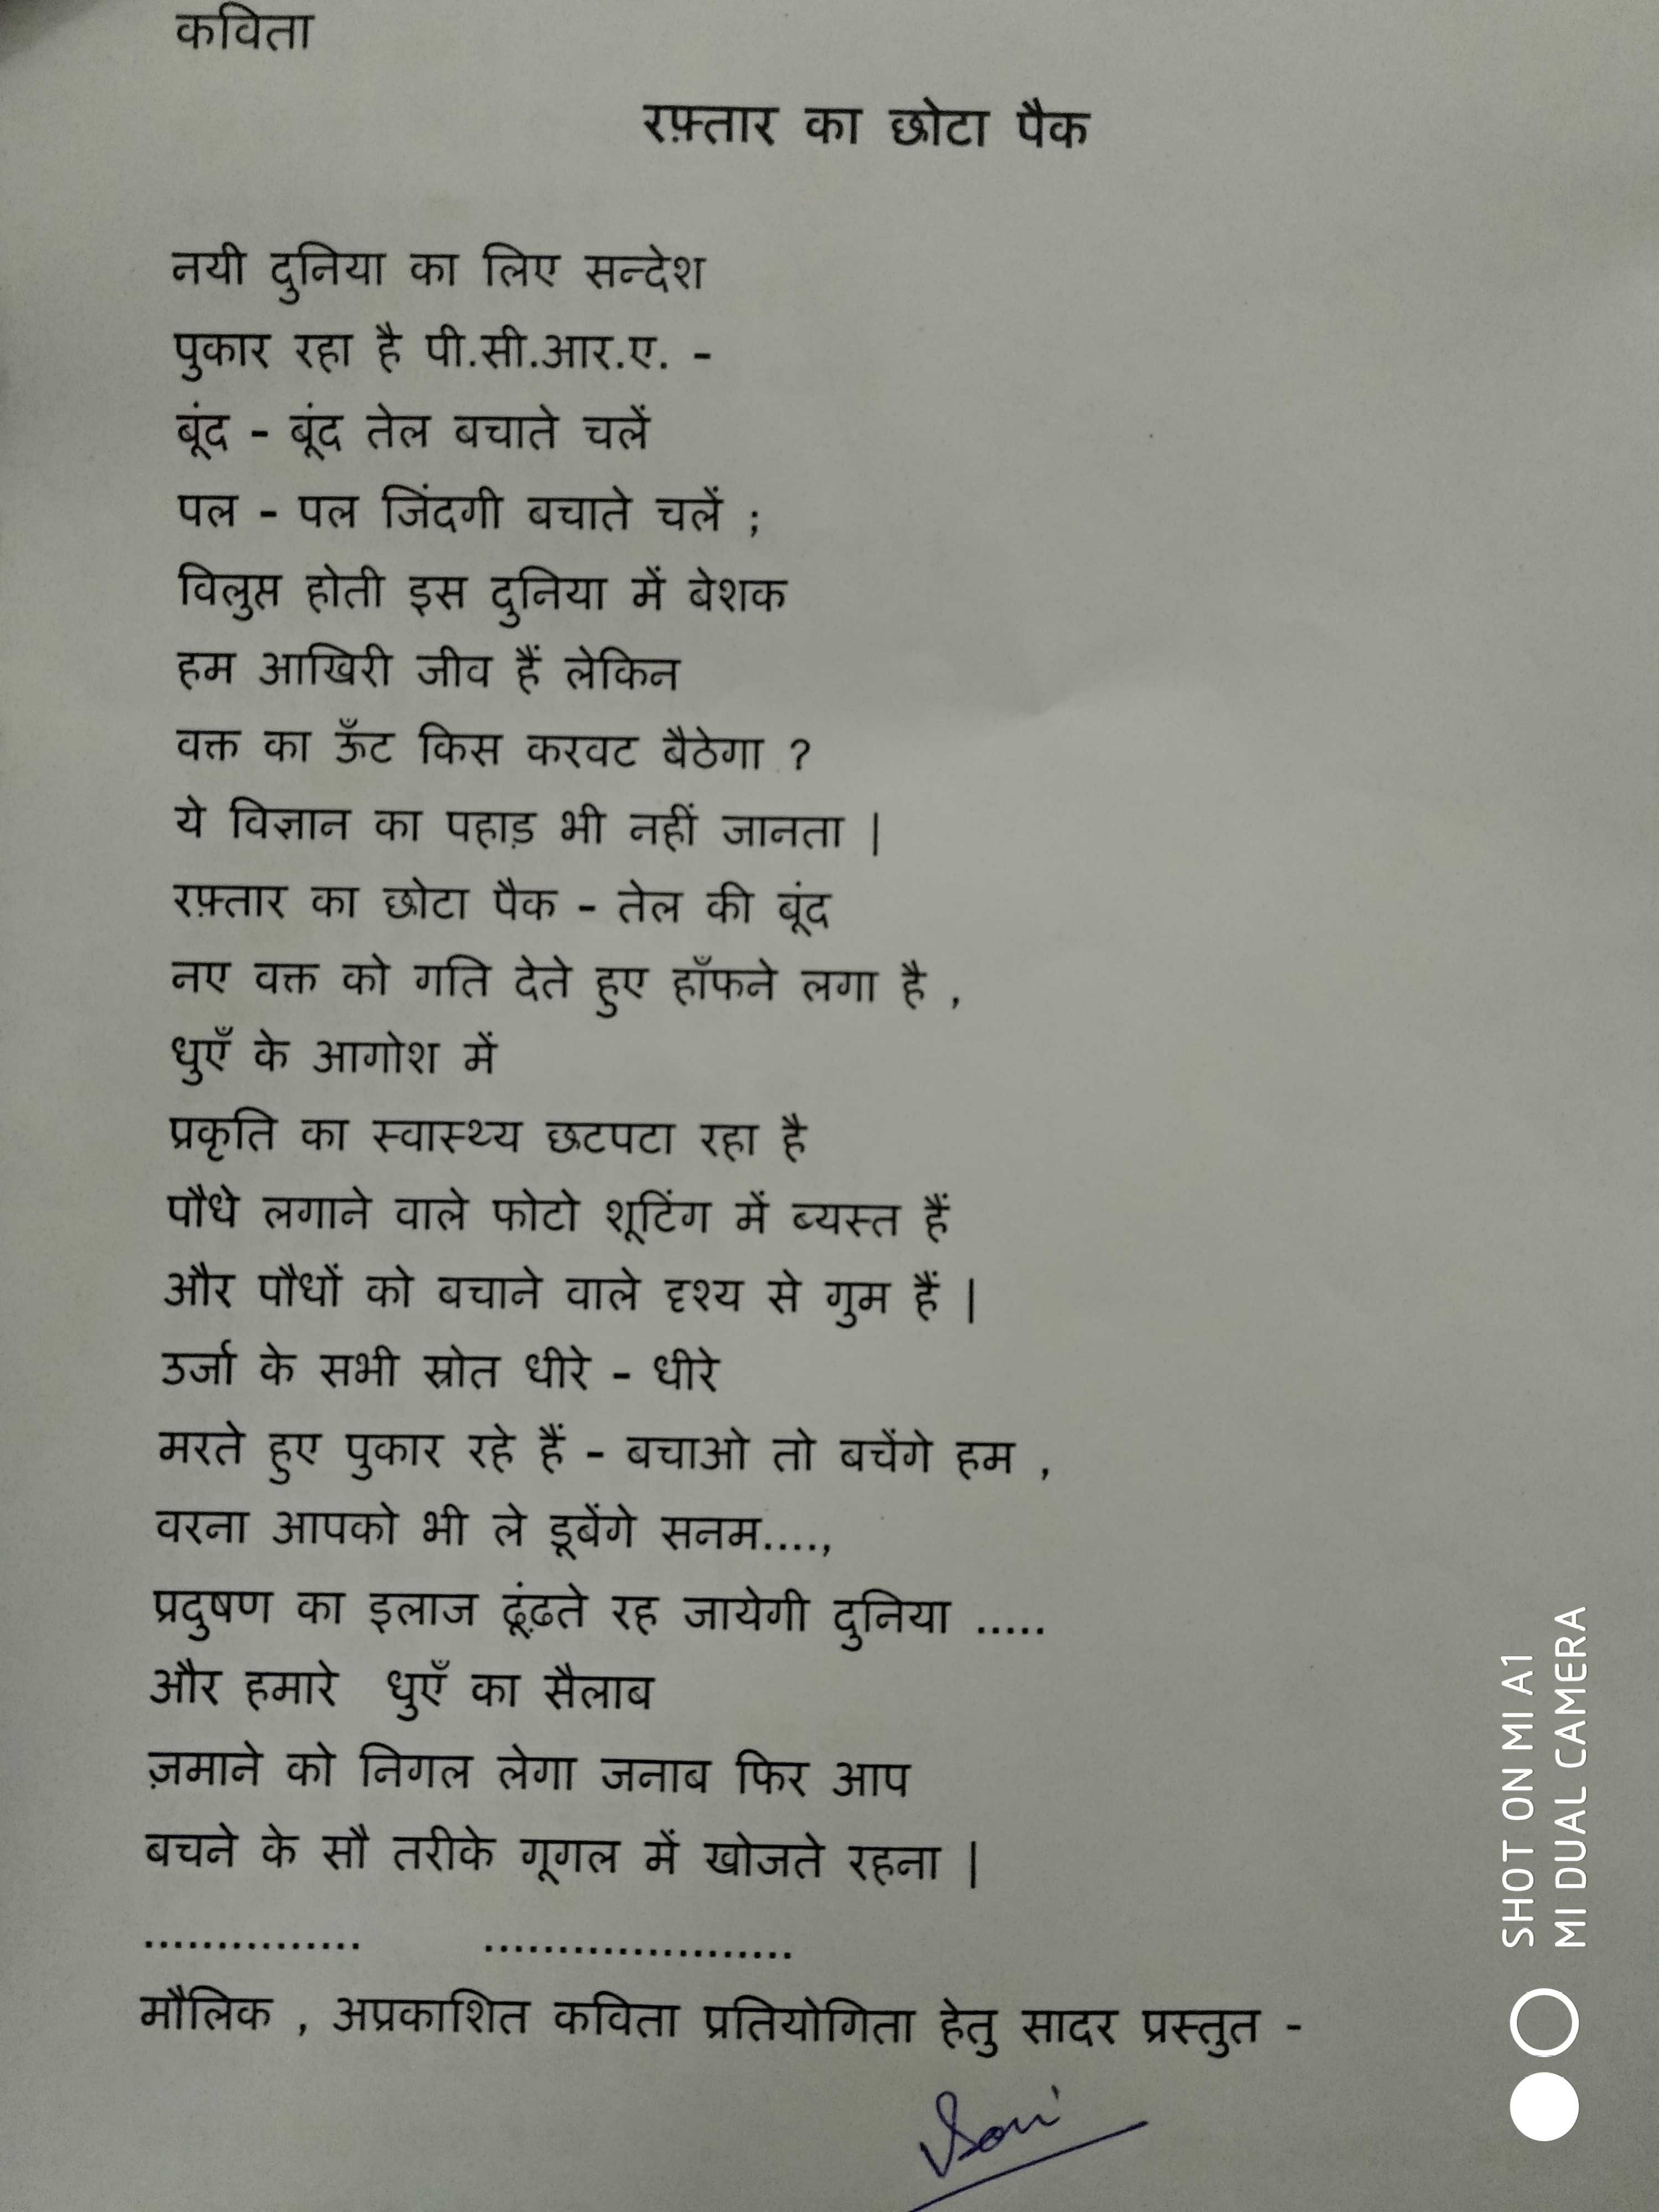 कविता
रफ़्तार का छोटा पैक
नयी दुनिया का लिए सन्देश
पुकार रहा है पी.सी.आर.ए. -
बूंद - बूंद तेल बचाते चलें
पल - पल जिंदगी बचाते चलें ;
विलुप्त होती इस दुनिया में बेशक
हम आखिरी जीव हैं लेकिन
वक्त का ऊँट किस करवट बैठेगा ?
ये विज्ञान का पहाड़ भी नहीं जानता |
रफ़्तार का छोटा पैक - तेल की बूंद
नए वक्त को गति देते हुए हाँफने लगा है ,
धुएँ के आगोश में
प्रकृति का स्वास्थ्य छटपटा रहा है
पौधे लगाने वाले फोटो शूटिंग में ब्यस्त हैं
और पौधों को बचाने वाले दृश्य से गुम हैं |
उर्जा के सभी स्रोत धीरे - धीरे
मरते हुए पुकार रहे हैं - बचाओ तो बचेंगे हम ,
वरना आपको भी ले डूबेंगे सनम....,
प्रदुषण का इलाज ढूंढ़ते रह जायेगी दुनिया .....
और हमारे धुएँ का सैलाब
ज़माने को निगल लेगा जनाब फिर आप
बचने के सौ तरीके गूगल में खोजते रहना |
............... .....................
मौलिक , अप्रकाशित कविता प्रतियोगिता हेतु सादर प्रस्तुत -
Soni
SHOT ON MI A1
MI DUAL CAMERA